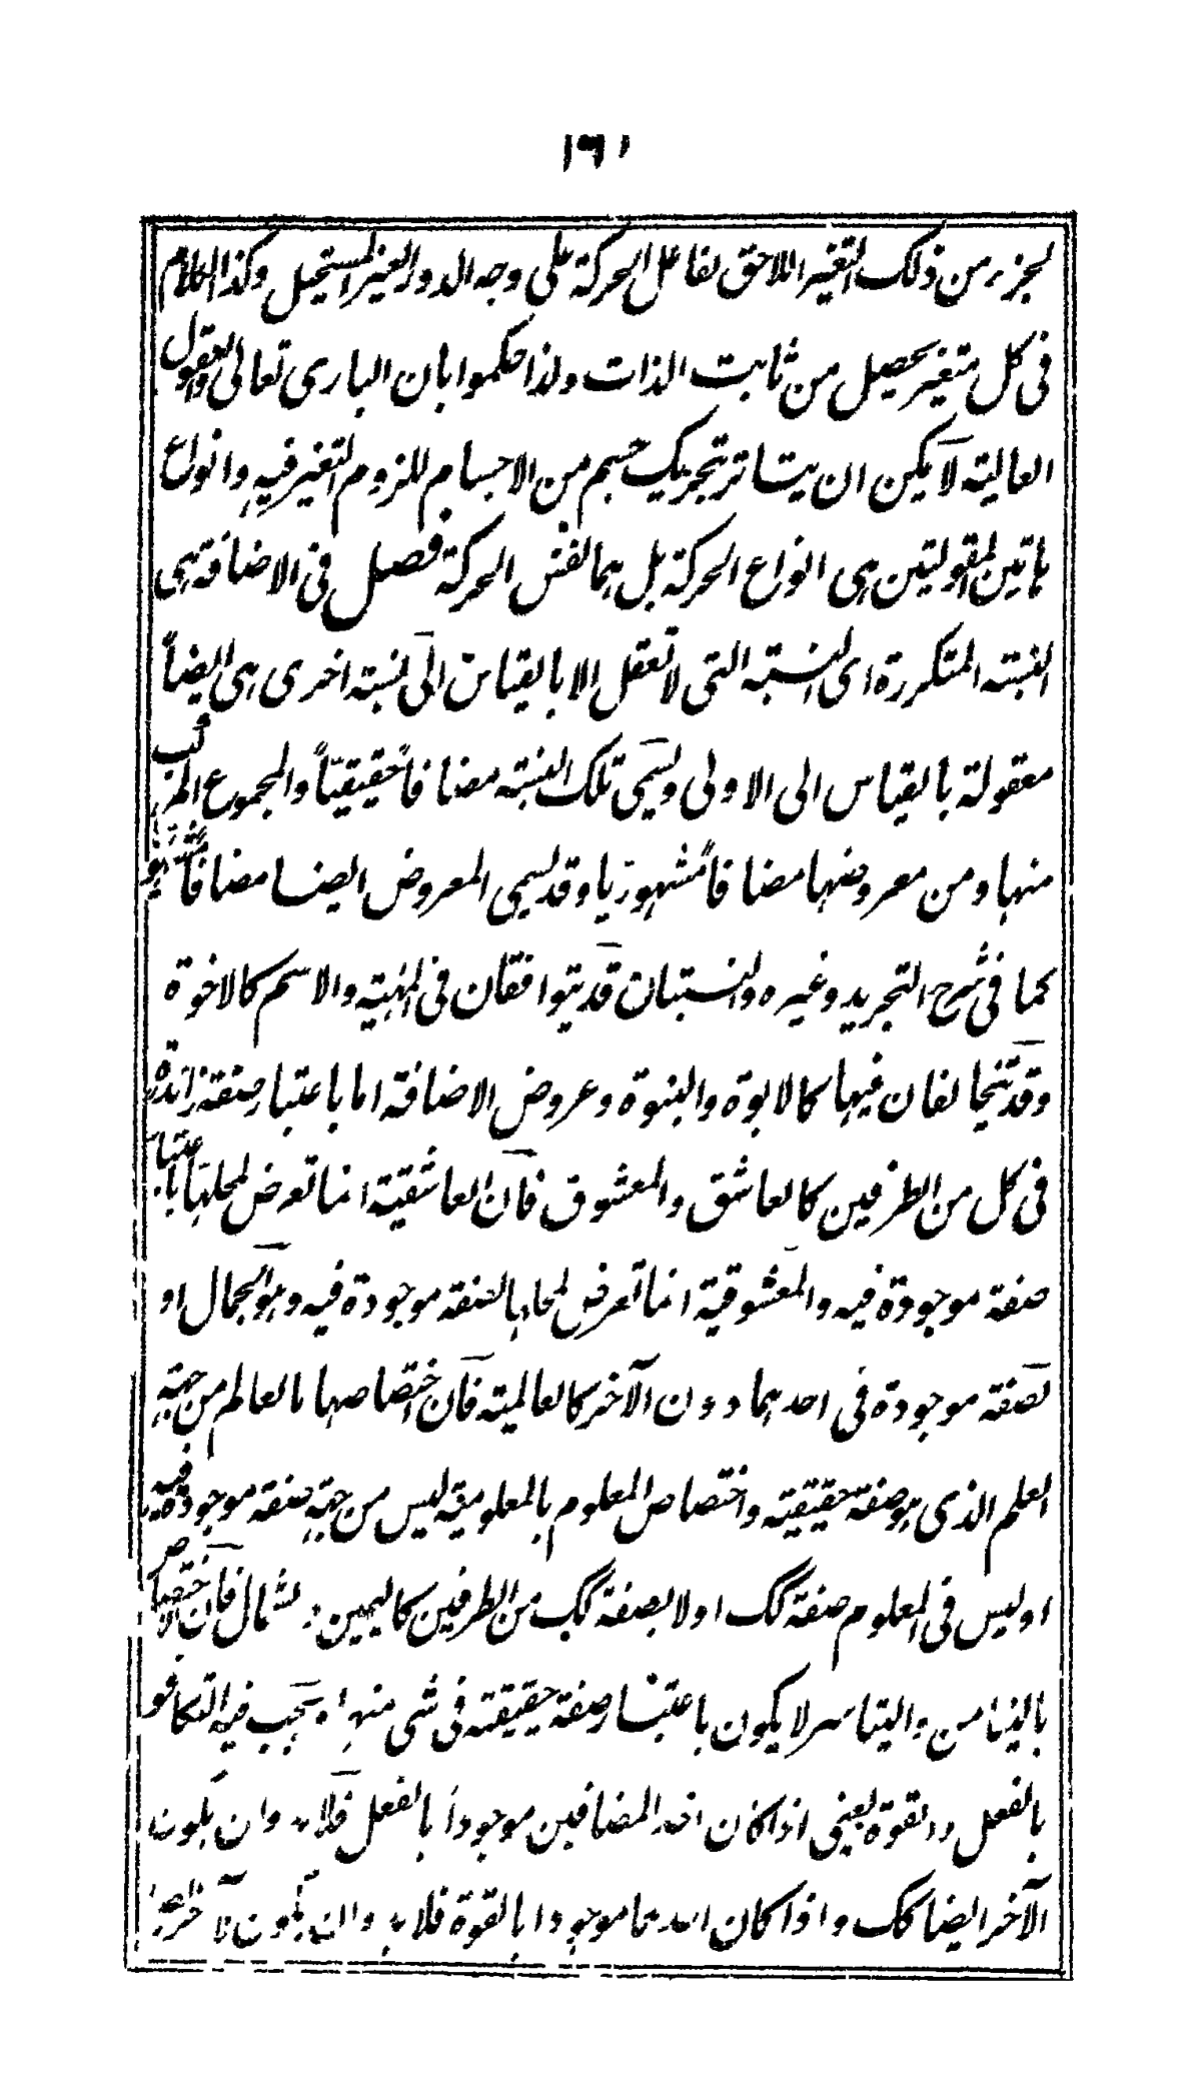 ١٦١
لجزء من ذلك التغير اللاحق لفاعل الحركة على وجه الدور الغير المستحيل وكذا الكلام
فى كل متغير يحصل من ثابت الذات ولذا حكموا بان البارى تعالى والعقول
العالية لا يمكن ان يتاثر بتحريك جسم من الاجسام للزوم التغير فيه وانواع
هاتين المقولتين هى انواع الحركة بل هما نفس الحركة فصل فى الاضافة هى
النسبة المتكررة اى النسبة التى لا تعقل الا بالقياس الى نسبة اخرى هى ايضاً
معقولة بالقياس الى الاولى ويسمى تلك النسبة مضافاً حقيقيّاً والمجموع المركب
منها ومن معروضها مضافاً مشهوريا وقد يسمى المعروض ايضا مضافاً مشهوريا
كما فى شرح التجريد وغيره والنسبتان قد يتوافقان فى المهية والاسم كالاخوة
وقد تتخالفان فيها كالابوة والبنوة وعروض الاضافة اما باعتبار صفة زائدة
فى كل من الطرفين كالعاشق والمعشوق فان العاشقية انما تعرض لمحلها باعتبار
صفة موجودة فيه والمعشوقية انما تعرض لمحلها بالصفة موجودة فيه وهو الجمال او
بصفة موجودة فى احدهما دون الآخر كالعالمية فان اختصاصها بالعالم من جهة
العلم الذى هو صفة حقيقية واختصاص المعلوم بالمعلومية ليس من جهة صفة موجودة فيه
او ليس فى المعلوم صفة كك اولا بصفة كك من الطرفين كاليمين والشمال فان الاختصاص
بالتيامن والتياسر لا يكون باعتبار صفة حقيقة فى شى منهما ويجب فيه التكافو
بالفعل والقوة يعنى اذا كان احد المضافين موجوداً بالفعل فلابد وان يكون
الآخر ايضا كك واذا كان احدهما موجودا بالقوة فلابد وان يكون الآخر